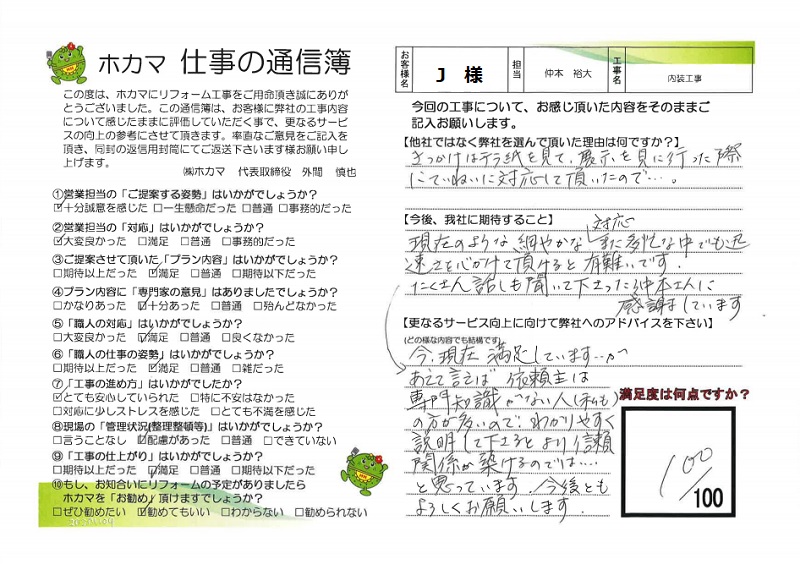 ホカマ 仕事の通信簿
この度は、ホカマにリフォーム工事をご用命頂き誠にありが
とうございました。この通信簿は、お客様に弊社の工事内容
について感じたままに評価していただく事で、更なるサービ
スの向上の参考にさせて頂きます。率直なご意見をご記入を
頂き、同封の返信用封筒にてご返送下さいます様お願い申し
上げます。
㈱ホカマ 代表取締役 外間 慎也
①営業担当の「ご提案する姿勢」はいかがでしょうか?
☑十分誠意を感じた □一生懸命だった □普通 □事務的だった
②営業担当の「対応」はいかがでしょうか?
☑大変良かった □満足 □普通 □事務的だった
③ご提案させて頂いた「プラン内容」はいかがでしょうか?
□期待以上だった ☑満足 □普通 □期待以下だった
④プラン内容に「専門家の意見」はありましたでしょうか?
□かなりあった ☑十分あった □普通 □殆んどなかった
⑤「職人の対応」はいかがでしょうか?
□大変良かった ☑満足 □普通 □良くなかった
⑥「職人の仕事の姿勢」はいかがでしょうか?
□期待以上だった ☑満足 □普通 □雑だった
⑦「工事の進め方」はいかがでしたか?
☑とても安心していられた □特に不安はなかった
□対応に少しストレスを感じた □とても不満を感じた
⑧現場の「管理状況(整理整頓等)」はいかがでしょうか?
□言うことなし ☑配慮があった □普通 □できていない
⑨「工事の仕上がり」はいかがでしょうか?
□期待以上だった ☑満足 □普通 □期待以下だった
⑩もし、お知合いにリフォームの予定がありましたら
ホカマを「お勧め」頂けますでしょうか?
□ぜひ勧めたい ☑勧めてもいい □わからない □勧められない
お客様名 J 様 担当 仲本 裕大 工事名 内装工事
今回の工事について、お感じ頂いた内容をそのままご
記入お願いします。
【他社ではなく弊社を選んで頂いた理由は何ですか?】
きっかけはチラ紙を見て、展示を見に行った際
にていねいに対応して頂いたので…。
【今後、我社に期待すること】
現在のような細やかな対応また多忙な中でも迅
速さを心がけて頂けると有難いです。
たくさん話しも聞いて下さった仲本さんに
感謝しています
【更なるサービス向上に向けて弊社へのアドバイスを下さい】
(どの様な内容でも結構です)
今、現在満足していますが
あえて言えば 依頼主は
専門知識がない人(私も)
の方が多いので、わかりやすく
説明して下さるとより信頼
関係が築けるのでは…
と思っています。今後とも
よろしくお願いします。
満足度は何点ですか?
100/100